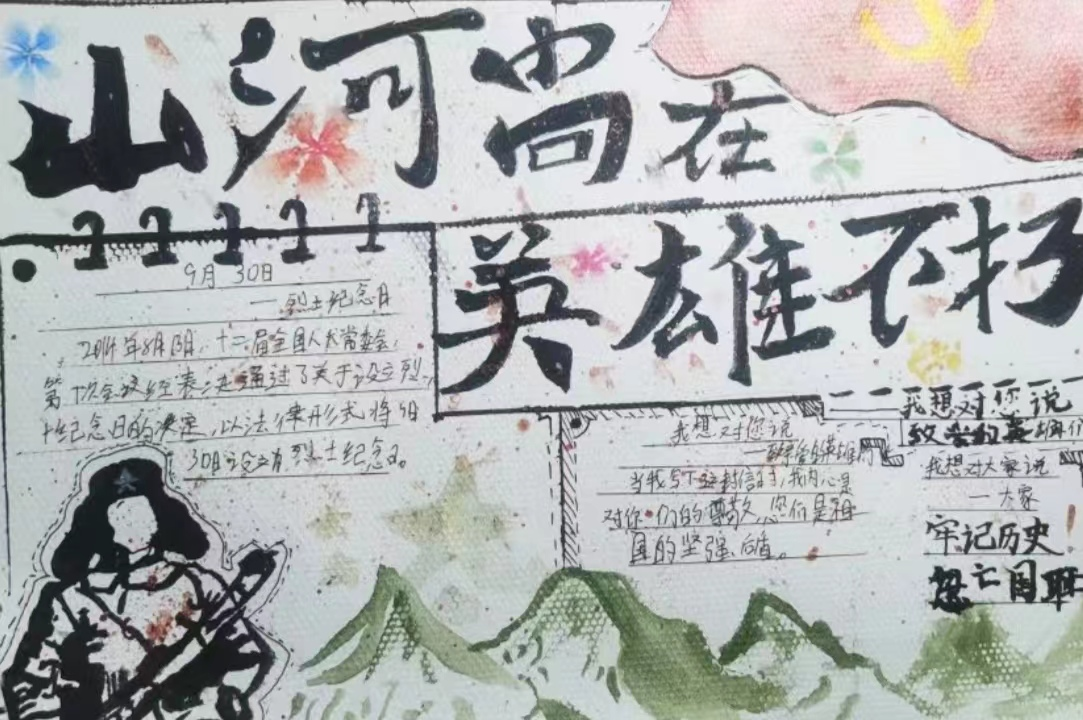 山河尚在
英雄不朽
9月30日
—烈士纪念日
2014年8月 日,十二届全国人大常委会,
第 次会议经表决通过了关于设立烈
士纪念日的决定,以法律形式将9月
30日设立为烈士纪念日。
我想对您说
当我写下这封信时,我内心是
对你们的尊敬,您们是祖
国的坚强后盾。
我想对您说
致 英雄们
我想对大家说
—大家
牢记历史
国耻